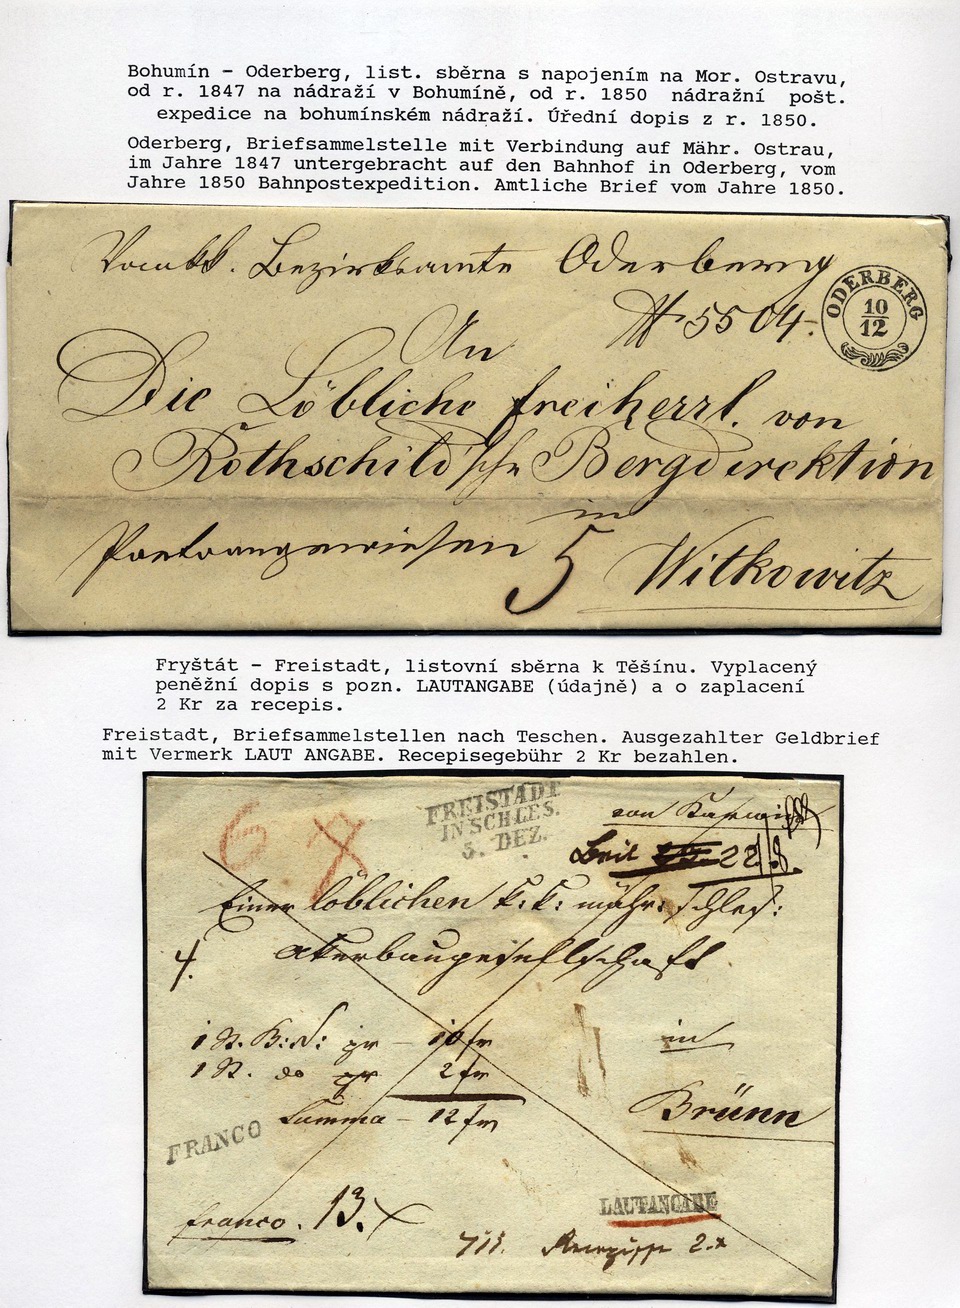 Bohumín - Oderberg, list. sběrna s napojením na Mor. Ostravu,
od r. 1847 na nádraží v Bohumíně, od r. 1850 nádražní pošt.
expedice na bohumínském nádraží. Úřední dopis z r. 1850.
Oderberg, Briefsammelstelle mit Verbindung auf Mähr. Ostrau,
im Jahre 1847 untergebracht auf den Bahnhof in Oderberg, vom
Jahre 1850 Bahnpostexpedition. Amtliche Brief vom Jahre 1850.
Vom kk. Bezirksamte Oderberg
ODERBERG
10
12
5504.
An
Die Löbliche freiherrl. von
Rothschild'sche Bergdirektion
in
Portoangewiesen 5 Witkowitz
Fryštát - Freistadt, listovní sběrna k Těšínu. Vyplacený
peněžní dopis s pozn. LAUTANGABE (údajně) a o zaplacení
2 Kr za recepis.
Freistadt, Briefsammelstellen nach Teschen. Ausgezahlter Geldbrief
mit Vermerk LAUT ANGABE. Recepisegebühr 2 Kr bezahlen.
FREISTADT
IN SCHLES.
5. DEZ.
von
6
Einer löblichen k: k: mähr: schles:
4.
akerbaugesellschaft
1 St. B: N: pr - 10 fr
in
1 St. do pr 2 fr
Summa - 12 fr
Brünn
FRANCO
LAUTANGABE
franco. 13. x
2. x